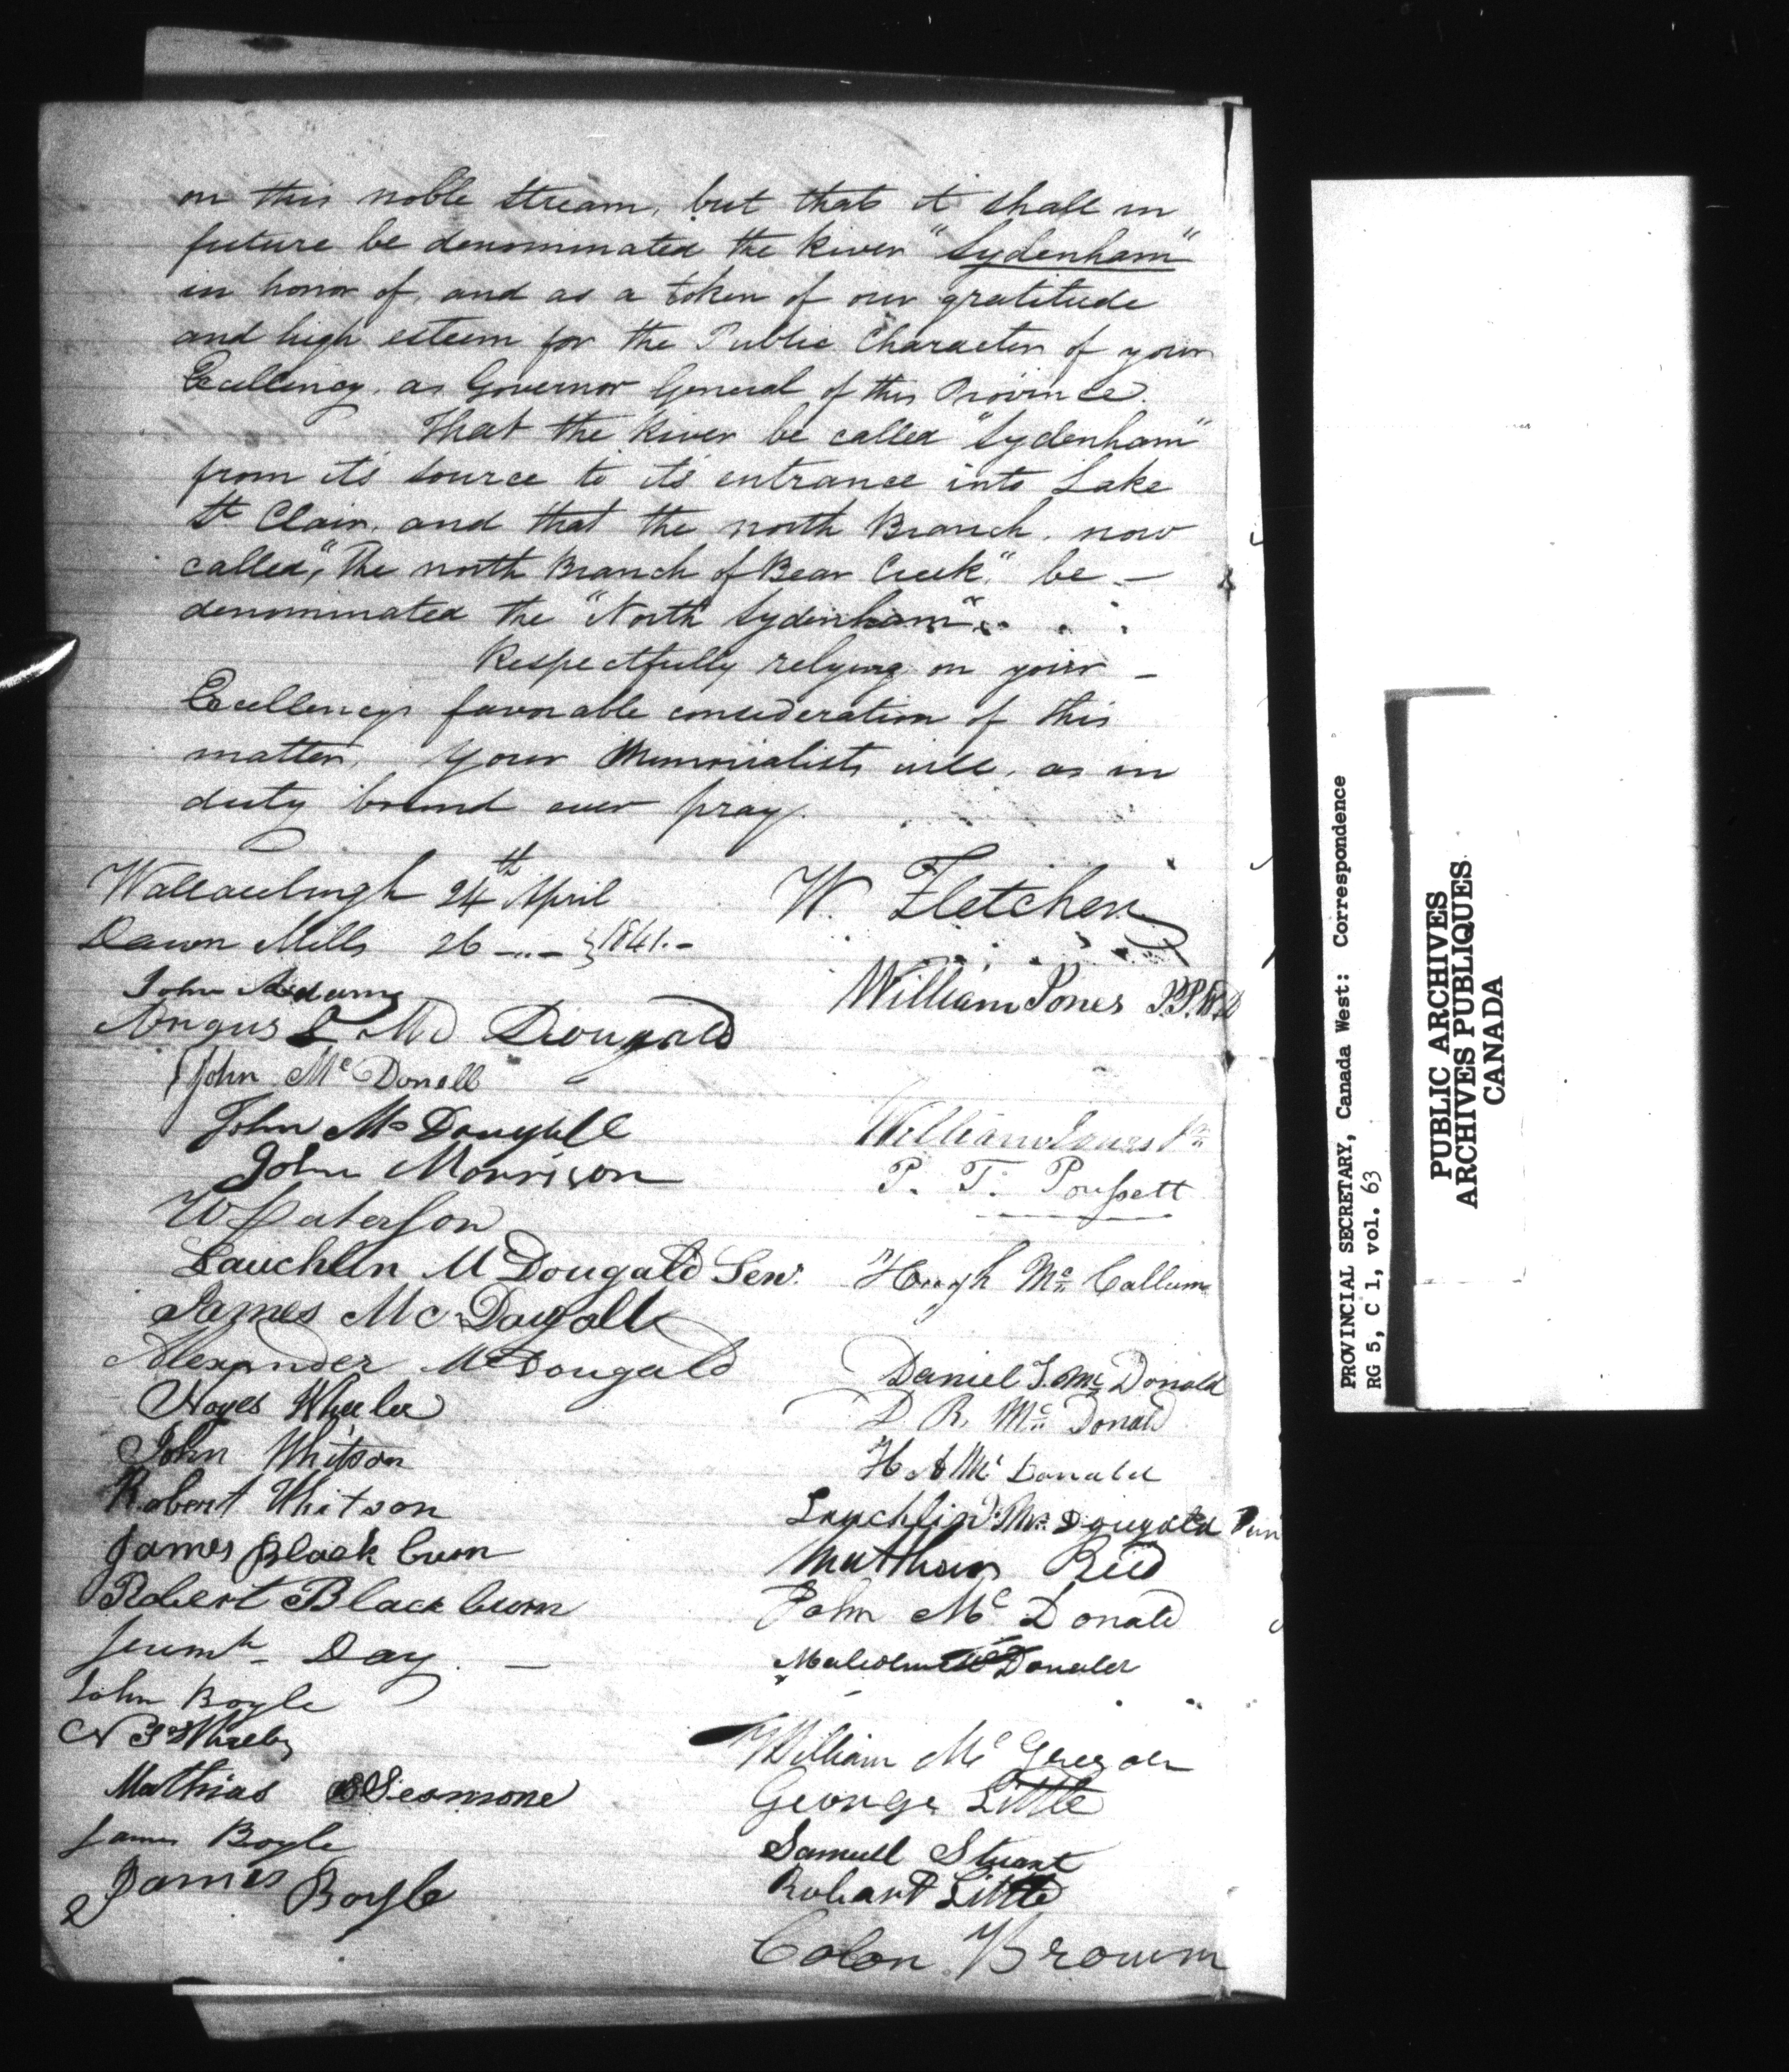 on this noble Stream, but that it shall in
future be denominated the River "Sydenham"
in honor of, and as a token of our gratitude
and high esteem for the Public Character of your
Excellency, as Governor General of this Province.
That the River be called "Sydenham"
from its source to its entrance into Lake
St Clair, and that the north Branch, now
called, "The north Branch of Bear Creek," be —
denominated the "North Sydenham".
Respectfully relying on your —
Excellencys favorable consideration of this
matter, Your Memorialists will, as in
duty bound ever pray.
Wallaceburgh 24th April
Dawn Mills 26 —..— } 1841.-
W. Fletcher
John
William Jones P.P.W.D
Angus Mc Dougald
John Mc Donell
John Mc Dougall
John Morrison
William Jones
P. T. Poussett
W Paterson
Lauchlin Mc Dougald Senr.
Hough Mc Callum
James Mc Dougall
Alexander McDougald
Daniel Mc Donald
Noyes Wheeler
D. R. Mc Donald
John Whitson
H A Mc Donald
Robert Whitson
Lauchlin Mc Dougald Jun
James Black burn
Matthew Reed
Robert Black burn
John Mc Donald
Jeremh Day. —
Malcolm Mc Donald
John Boyle
William Mc Gregor
Mathias
George Little
James Boyle
Samuell Stuart
James Boyle
Robart Little
Colon Brown
PROVINCIAL SECRETARY, Canada West: Correspondence
RG 5, C 1, vol. 63
PUBLIC ARCHIVES
ARCHIVES PUBLIQUES
CANADA